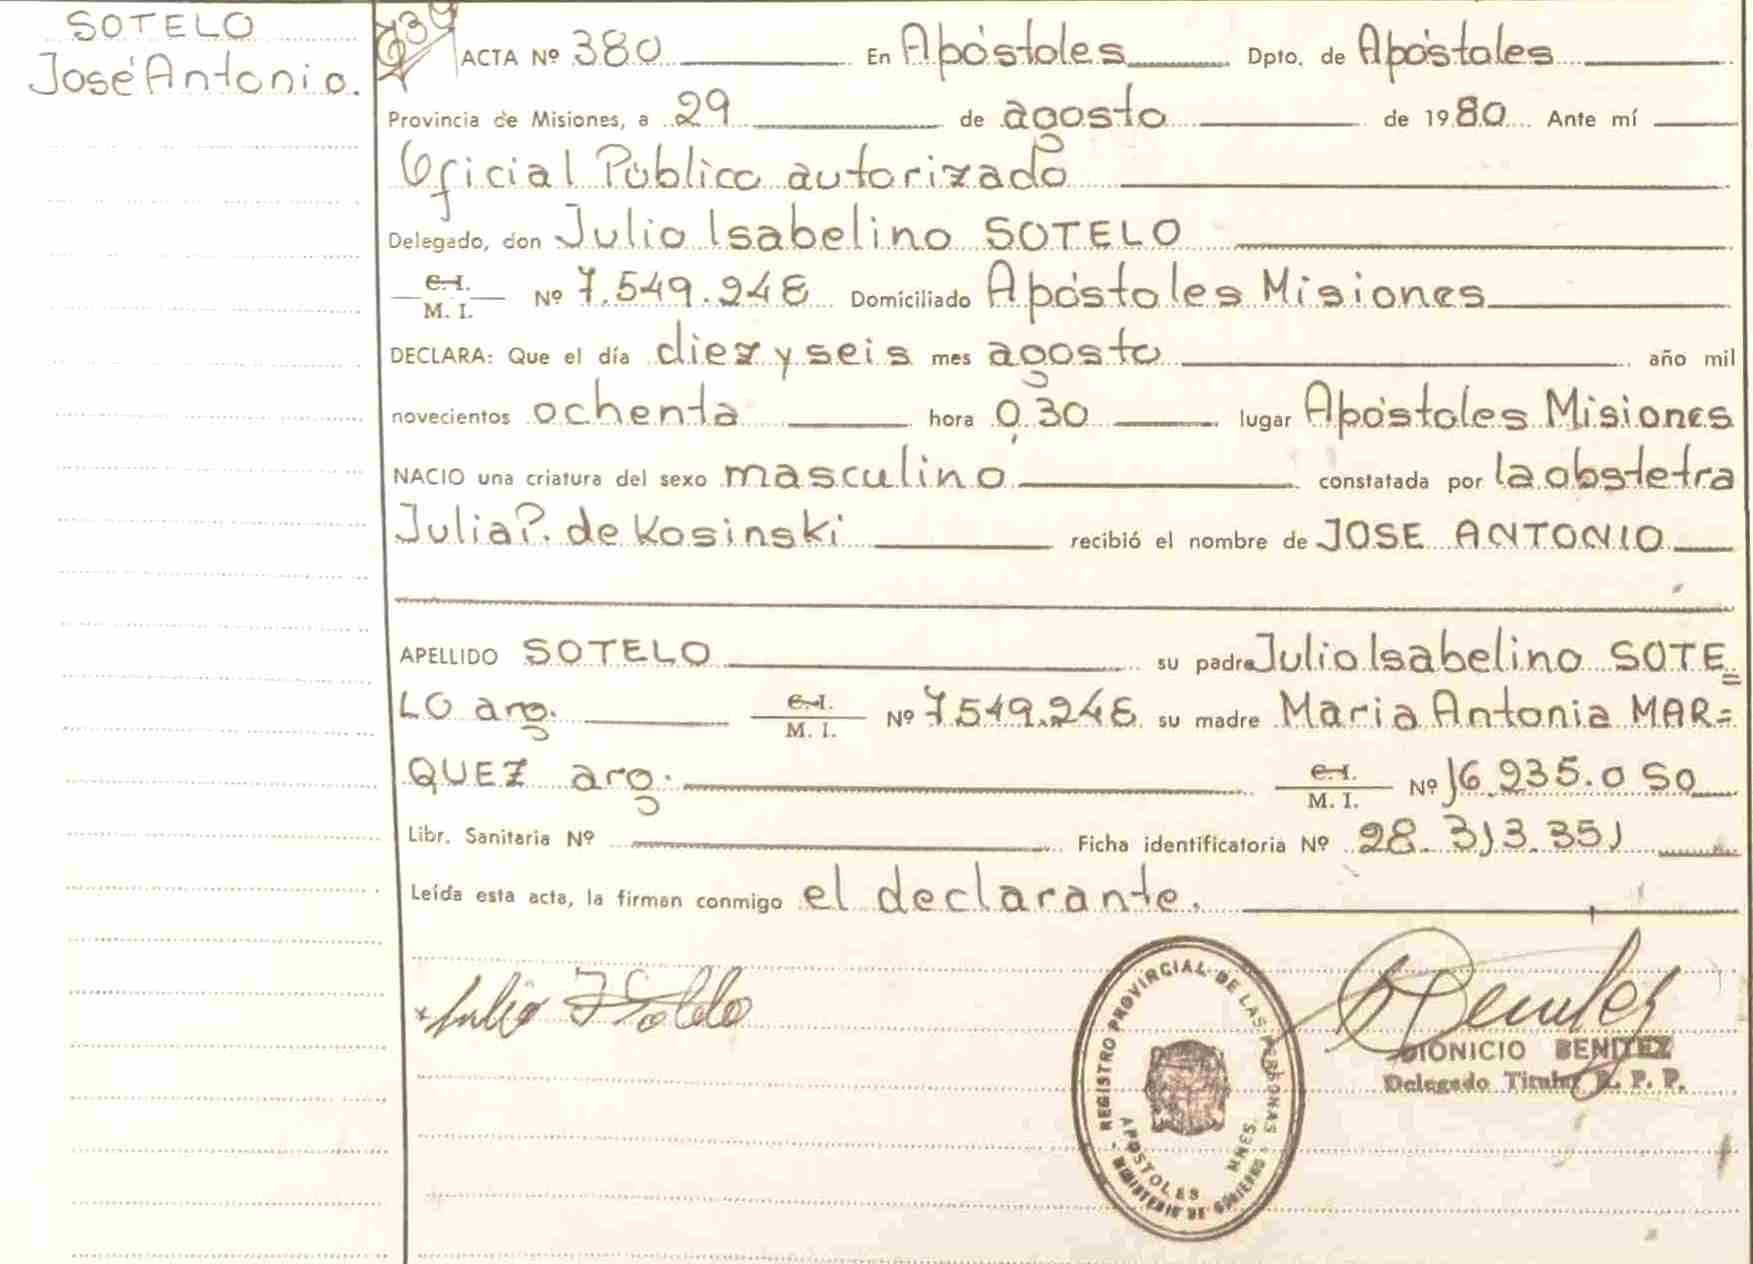 SOTELO
José Antonio.
ACTA Nº 380 En Apóstoles Dpto. de Apóstoles
Provincia de Misiones, a 29 de agosto de 1980 Ante mí
Oficial Público autorizado
Delegado, don Julio Isabelino SOTELO
C.I.
M. I. Nº 7.549.248 Domiciliado Apóstoles Misiones
DECLARA: Que el día diez y seis mes agosto año mil
novecientos ochenta hora 0,30 lugar Apóstoles Misiones
NACIO una criatura del sexo masculino constatada por la obstetra
Julia P. de Kosinski recibió el nombre de JOSE ANTONIO
APELLIDO SOTELO su padre Julio Isabelino SOTE=
LO arg. C.I. M. I. Nº 7.549.248 su madre Maria Antonia MAR=
QUEZ arg. C.I. M. I. Nº 16.935.050
Libr. Sanitaria Nº Ficha identificatoria Nº 28.313.351
Leída esta acta, la firman conmigo el declarante.
REGISTRO PROVINCIAL DE LAS PERSONAS
APOSTOLES MNES.
MINISTERIO DE GOBIERNO
DIONICIO BENITEZ
Delegado Titular R. P. P.